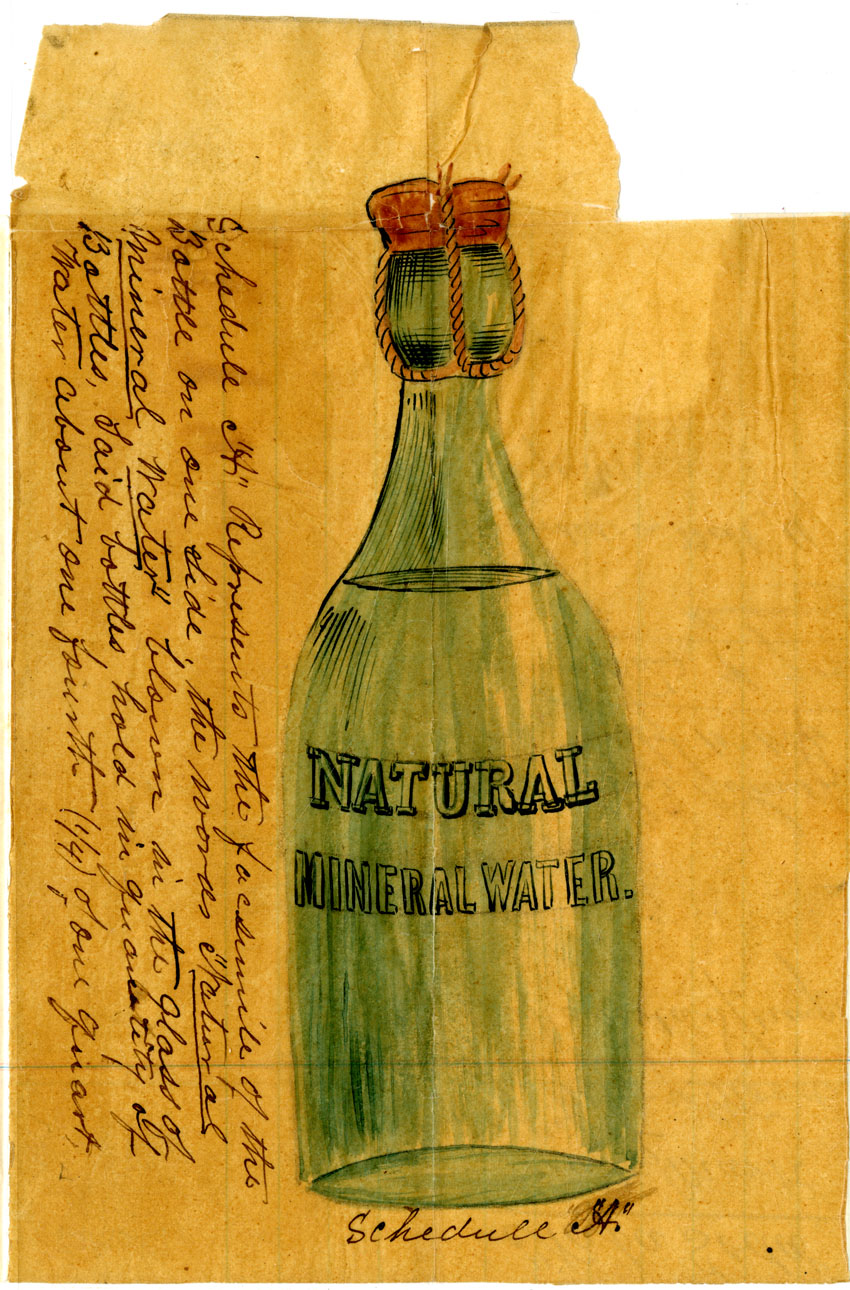 Schedule "A" Represents the facsimile of the
Bottle on one side, the words "Natural
Mineral Water" blown in the glass of
Bottles, Said bottles hold in quantity of
Water about one fourth (1/4) of one quart.
NATURAL
MINERAL WATER.
Schedule "A."